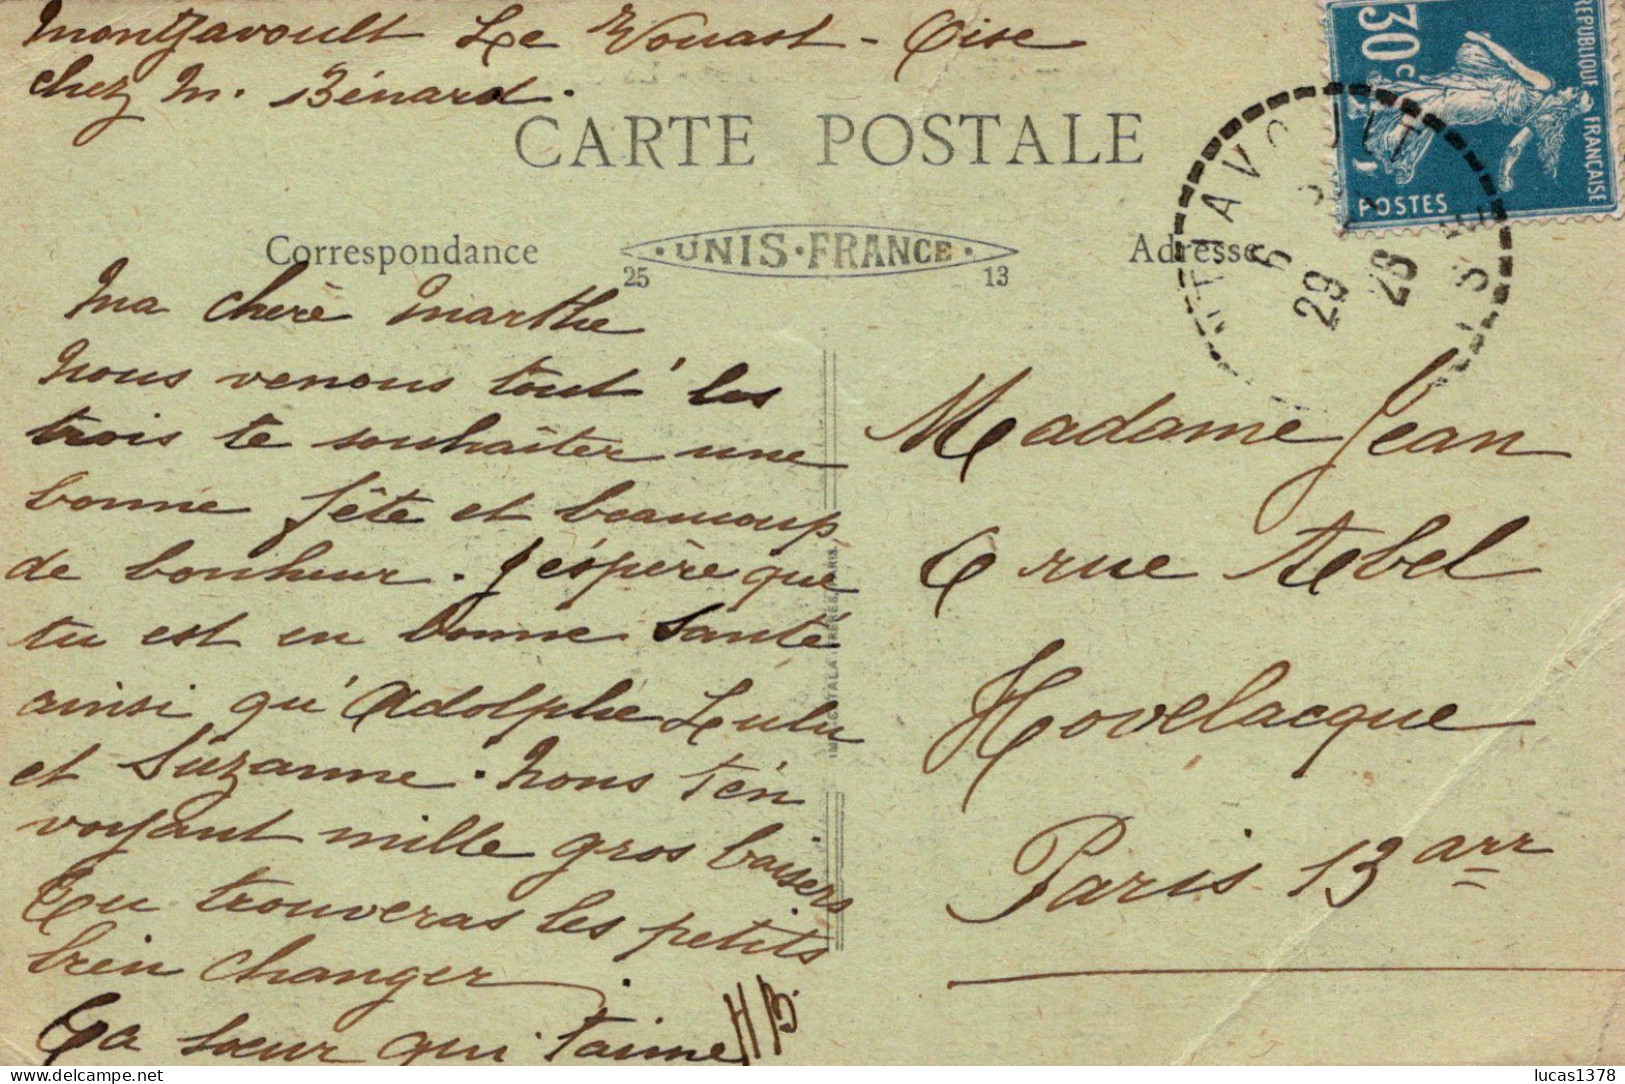 Montjavoult Le Vouast - Oise
chez M. Bénard.
CARTE POSTALE
Correspondance
·UNIS·FRANCE·
25 13
Adresse
30c
REPUBLIQUE FRANÇAISE
POSTES
NTJAVOULT
6
29 - 7
28
OISE
Ma chère Marthe
Nous venons tout les
trois te souhaiter une
bonne fête et beaucoup
de bonheur. J'éspère que
tu est en bonne santé
ainsi qu'Adolphe Lulu
et Suzanne. Nous t'en
voyant mille gros baisers
Tu trouveras les petits
bien changer.
Ta sœur qui t'aime HB.
Madame Jean
6 rue Abel
Hovelacque
Paris 13 arr
lucas1378